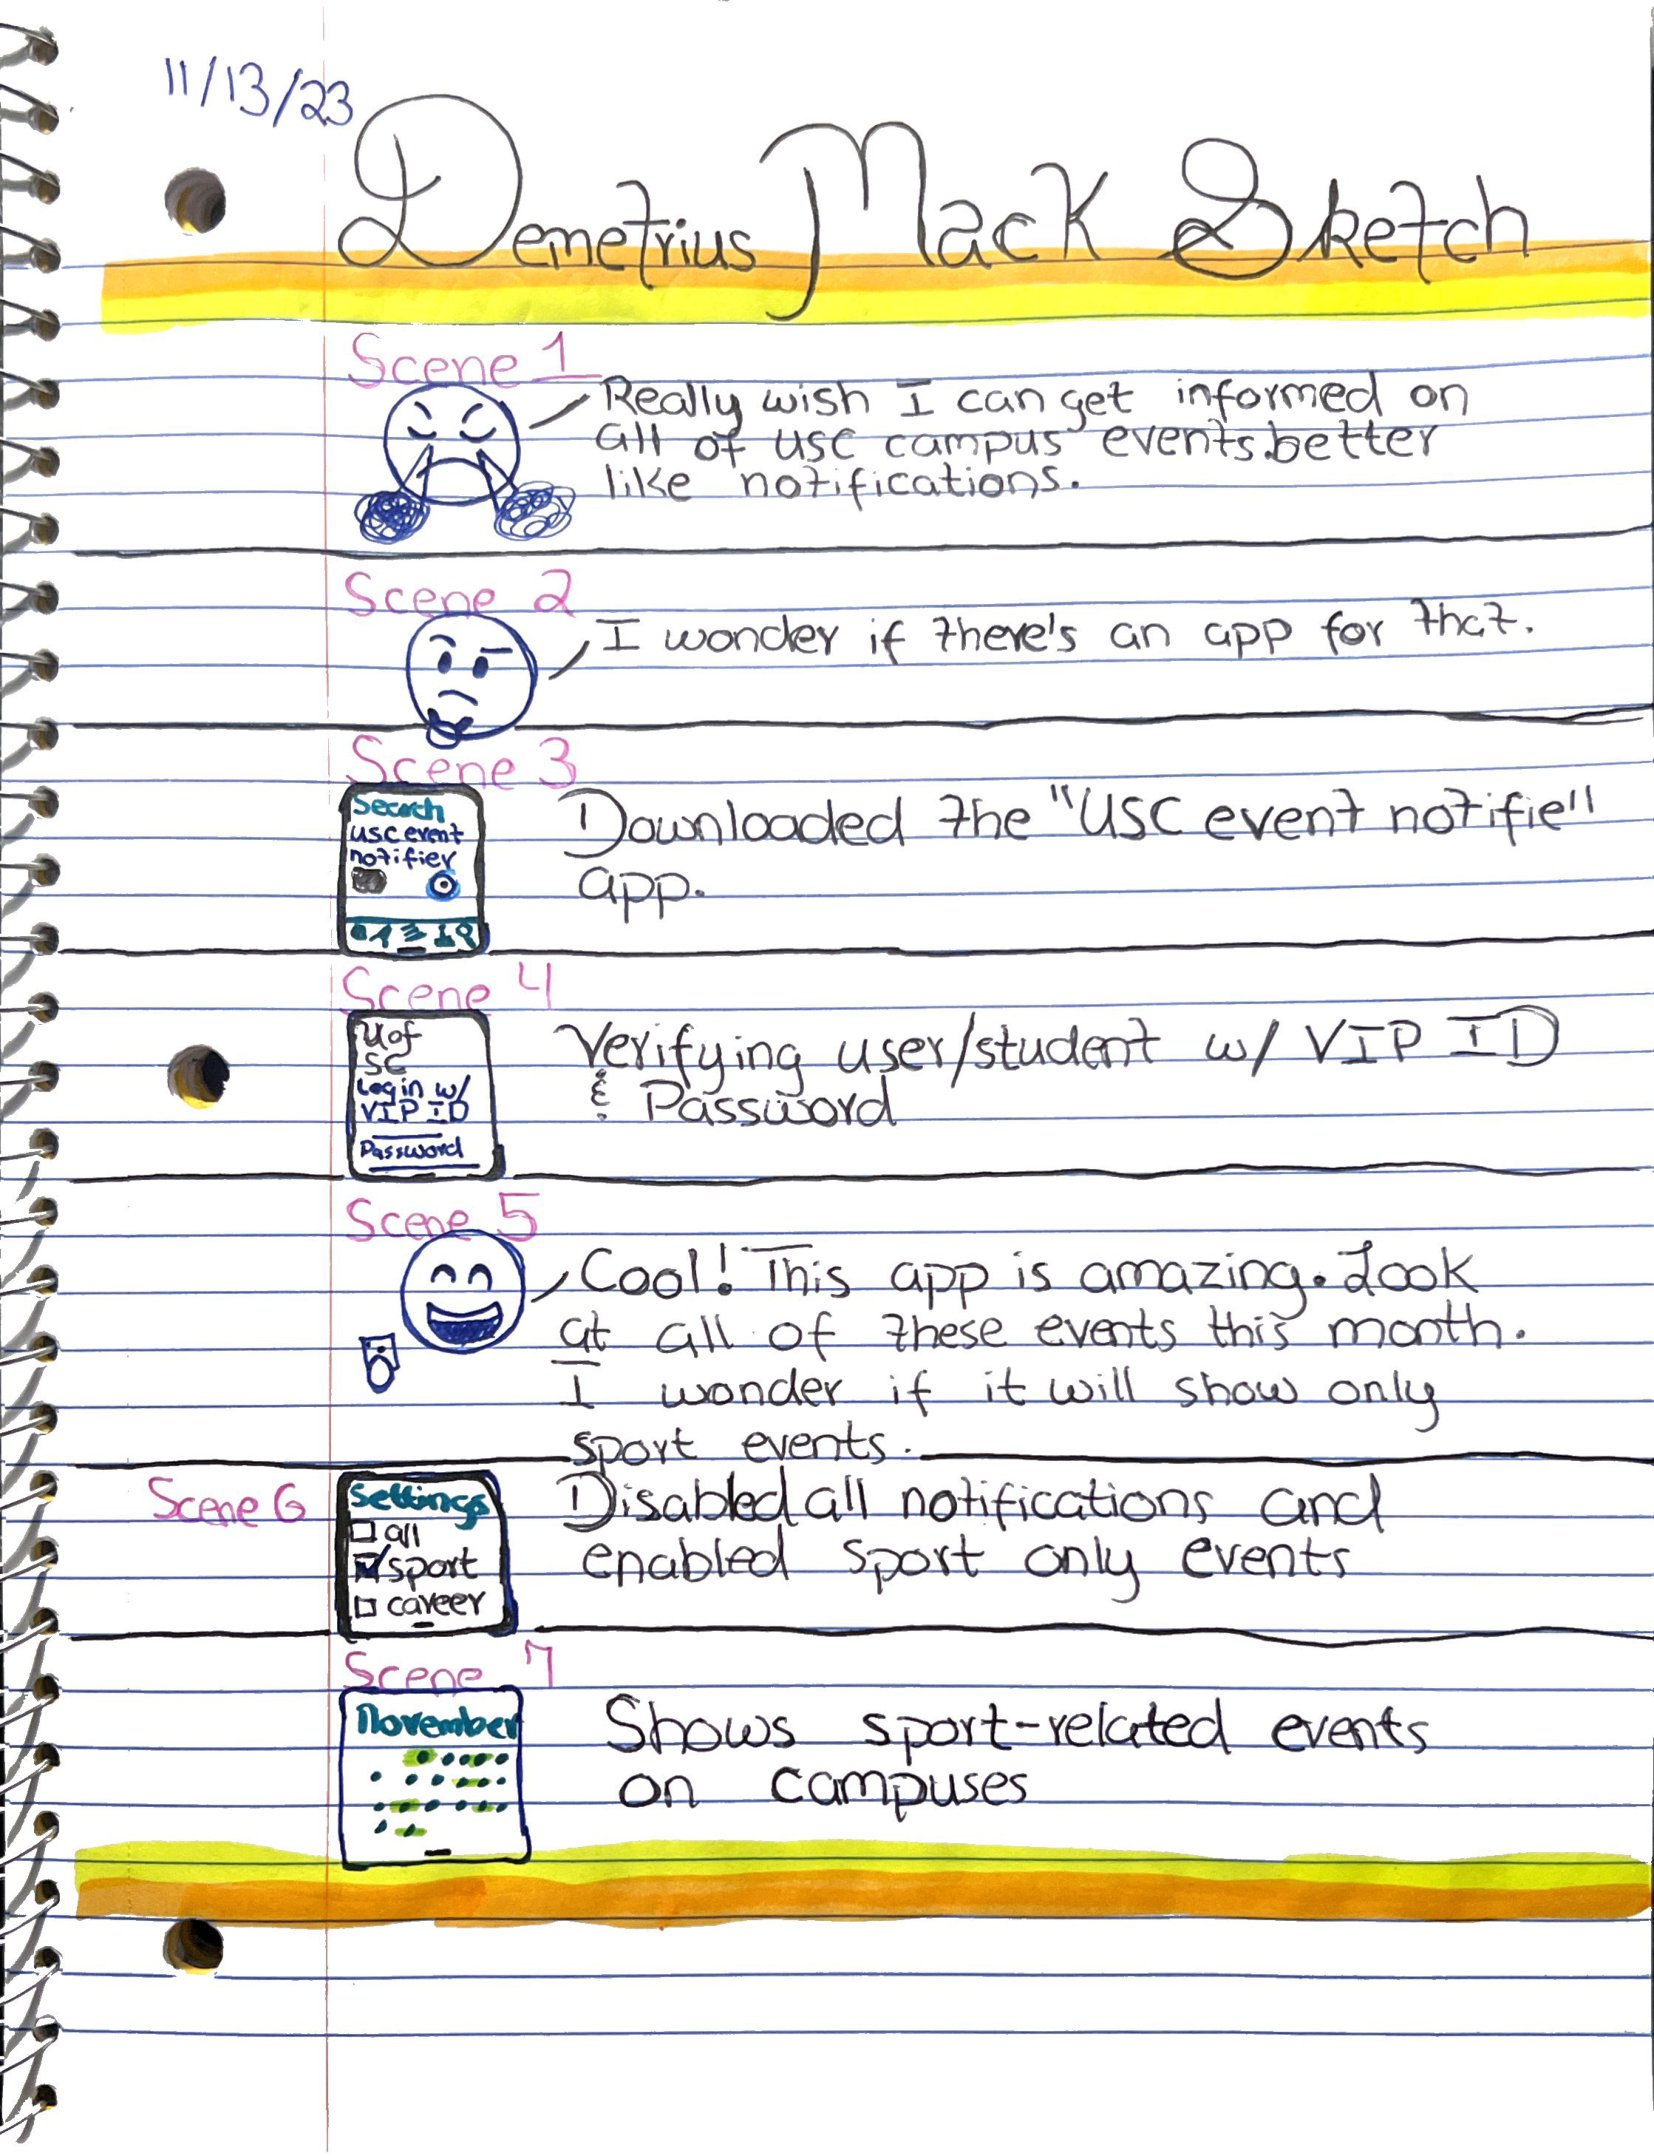 11/13/23
Demetrius Mack Sketch
Scene 1
Really wish I can get informed on
all of USC campus events.better
like notifications.
Scene 2
I wonder if there's an app for that.
Scene 3
Search
USC event
notifier
Downloaded the "USC event notifie"
app.
Scene 4
Uof
SC
Login w/
VIP ID
Password
Verifying user/student w/ VIP ID
& Password
Scene 5
Cool! This app is amazing. Look
at all of these events this month.
I wonder if it will show only
sport events.
Scene 6
Settings
all
sport
career
Disabled all notifications and
enabled sport only events
Scene 7
November
Shows sport-related events
on campuses